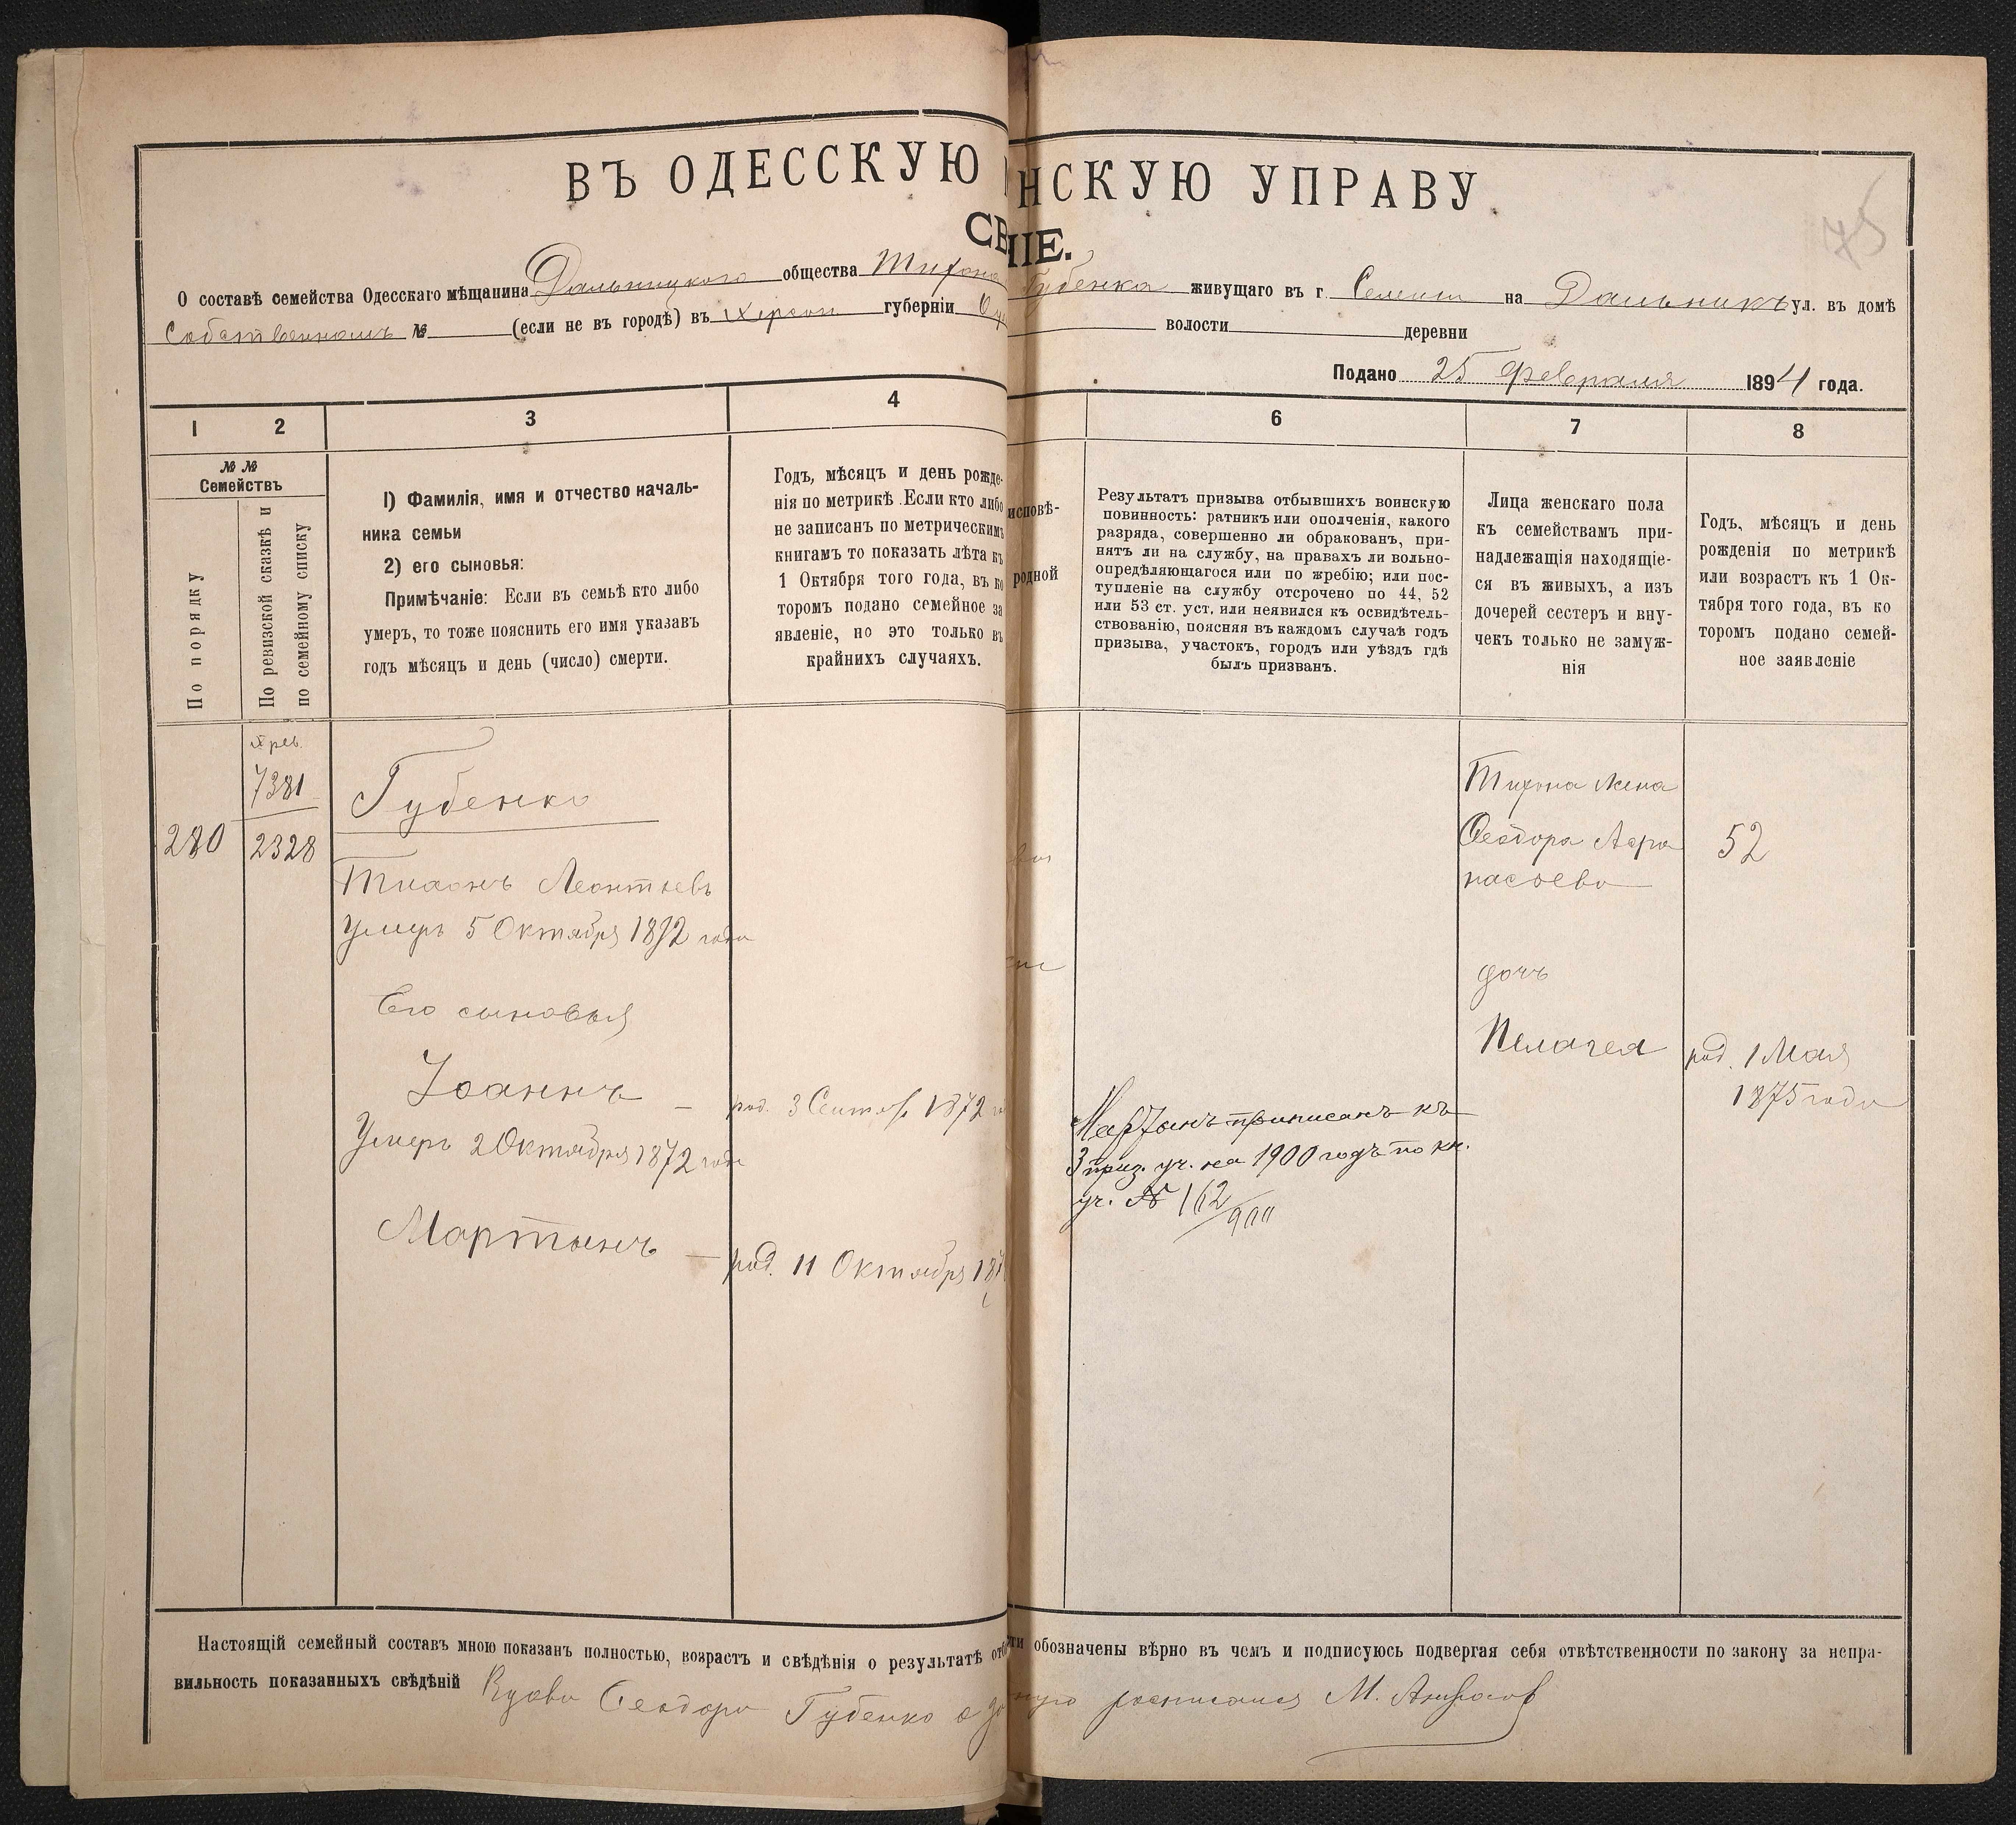 ВЪ ОДЕССКУЮ НСКУЮ УПРАВУ
СВ НІЕ.
75
О составѣ семейства Одесскаго мѣщанина Дальницкого общества Тифона Губенка живущаго въ г. Селеніи на Дальникъ ул. въ домѣ
Собственномъ № (если не въ городѣ) въ Херсон губерніи волости деревни
Подано 25 Февраля 1894 года.
1 2 3 4 6 7 8
№ №
Семействъ
По порядку
По ревизской сказкѣ и
по семейному списку
1) Фамилія, имя и отчество началь-
ника семьи
2) его сыновья:
Примѣчаніе: Если въ семьѣ кто либо
умеръ, то тоже пояснить его имя указавъ
годъ мѣсяцъ и день (число) смерти.
Годъ, мѣсяцъ и день рожде-
нія по метрикѣ. Если кто либо
не записанъ по метрическимъ
книгамъ то показать лѣта къ
1 Октября того года, въ ко
торомъ подано семейное за
явленіе, но это только въ
крайнихъ случаяхъ.
исповѣ-
родной
Результатъ призыва отбывшихъ воинскую
повинность: ратникъ или ополченія, какого
разряда, совершенно ли обракованъ, при-
нятъ ли на службу, на правахъ ли вольно-
опредѣляющагося или по жребію; или пос-
тупленіе на службу отсрочено по 44, 52
или 53 ст. уст. или неявился къ освидѣтель-
ствованію, поясняя въ каждомъ случаѣ годъ
призыва, участокъ, городъ или уѣздъ гдѣ
былъ призванъ.
Лица женскаго пола
къ семействамъ при-
надлежащія находящіе-
ся въ живыхъ, а изъ
дочерей сестеръ и вну-
чекъ только не замуж-
нія
Годъ, мѣсяцъ и день
рожденія по метрикѣ
или возрастъ къ 1 Ок-
тября того года, въ ко
торомъ подано семей-
ное заявленіе
рев.
7381
280 2328
Губенко
Тихонъ Леонтьевъ
Умеръ 5 Октября 1892 года
Его сыновья
Іоаннъ — род. 3 Сентяб 1872
Умеръ 2 Октября 1872 года
Мартынъ — род. 11 Октября 187
Мартынъ приписанъ къ
3 приз. уч. на 1900 годъ по кн.
уч. № 162/900
Тифона жена
Феодора Афа
насьева
52
дочь
Пелагея
род. 1 Мая
1875 года
Настоящій семейный составъ мною показанъ полностью, возрастъ и свѣдѣнія о результатѣ отб ти обозначены вѣрно въ чемъ и подписуюсь подвергая себя отвѣтственности по закону за непра-
вильность показанныхъ свѣдѣній Вдова Феодора Губенко а росписался М.